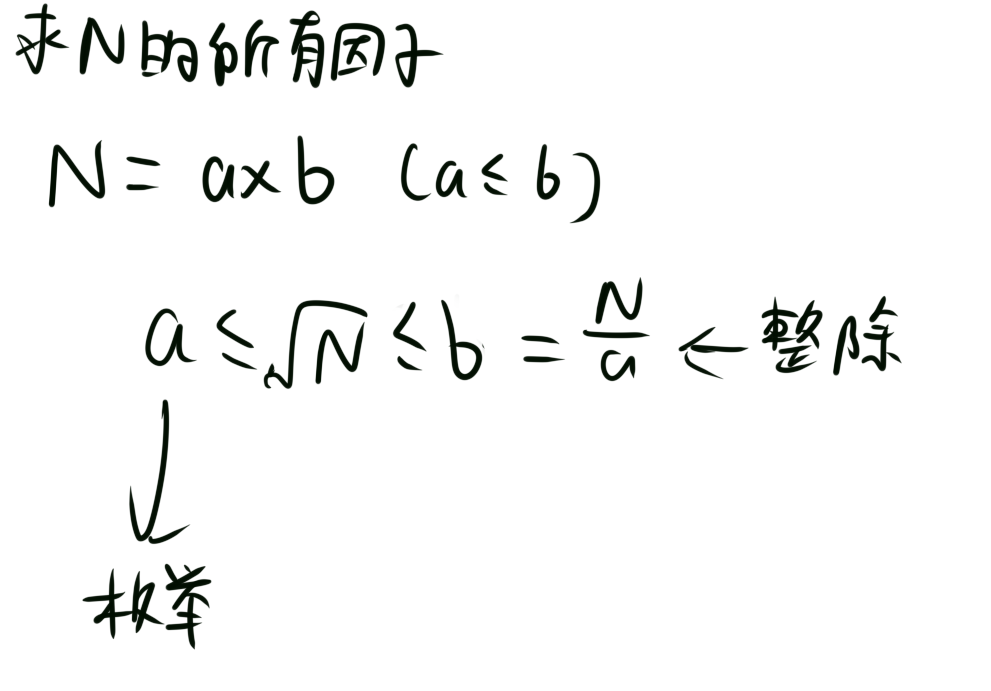 求N的所有因子
N = a×b (a ≤ b)
a ≤ √N ≤ b = N/a ← 整除
枚举